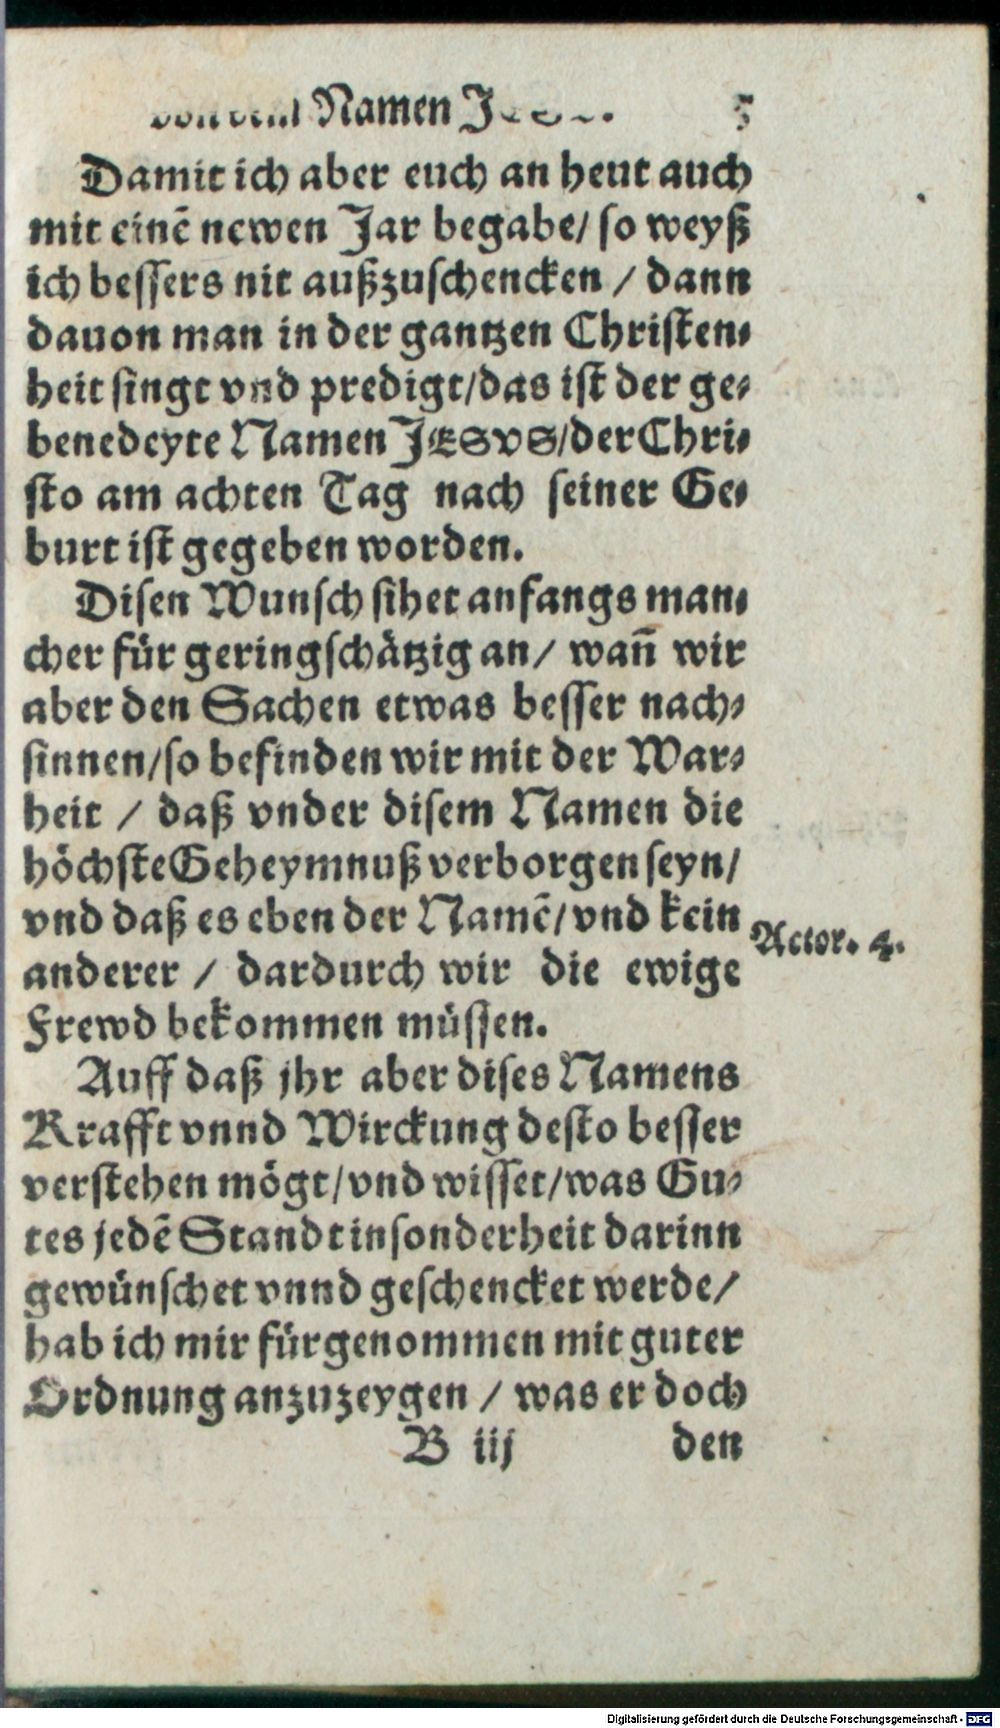 Namen
Damit ich aber euch an heut auch
mit einē newen Jar begabe/ so weyß
ich bessers nit außzuschencken / dann
dauon man in der gantzen Christen⸗
heit singt vnd predigt/das ist der ge⸗
benedeyte Namen JESVS/der Chri⸗
sto am achten Tag nach seiner Ge⸗
burt ist gegeben worden.
Disen Wunsch sihet anfangs man⸗
cher für geringschätzig an/ wañ wir
aber den Sachen etwas besser nach⸗
sinnen/so befinden wir mit der War⸗
heit / daß vnder disem Namen die
höchste Geheymnuß verborgen seyn/
vnd daß es eben der Namē/vnd kein
Actor. 4.
anderer / dardurch wir die ewige
Frewd bekommen müssen.
Auff daß jhr aber dises Namens
Krafft vnnd Wirckung desto besser
verstehen mögt/vnd wisset/was Gu⸗
tes jedē Standt insonderheit darinn
gewünschet vnnd geschencket werde/
hab ich mir fürgenommen mit guter
Ordnung anzuzeygen / was er doch
B iij den
Digitalisierung gefördert durch die Deutsche Forschungsgemeinschaft - DFG